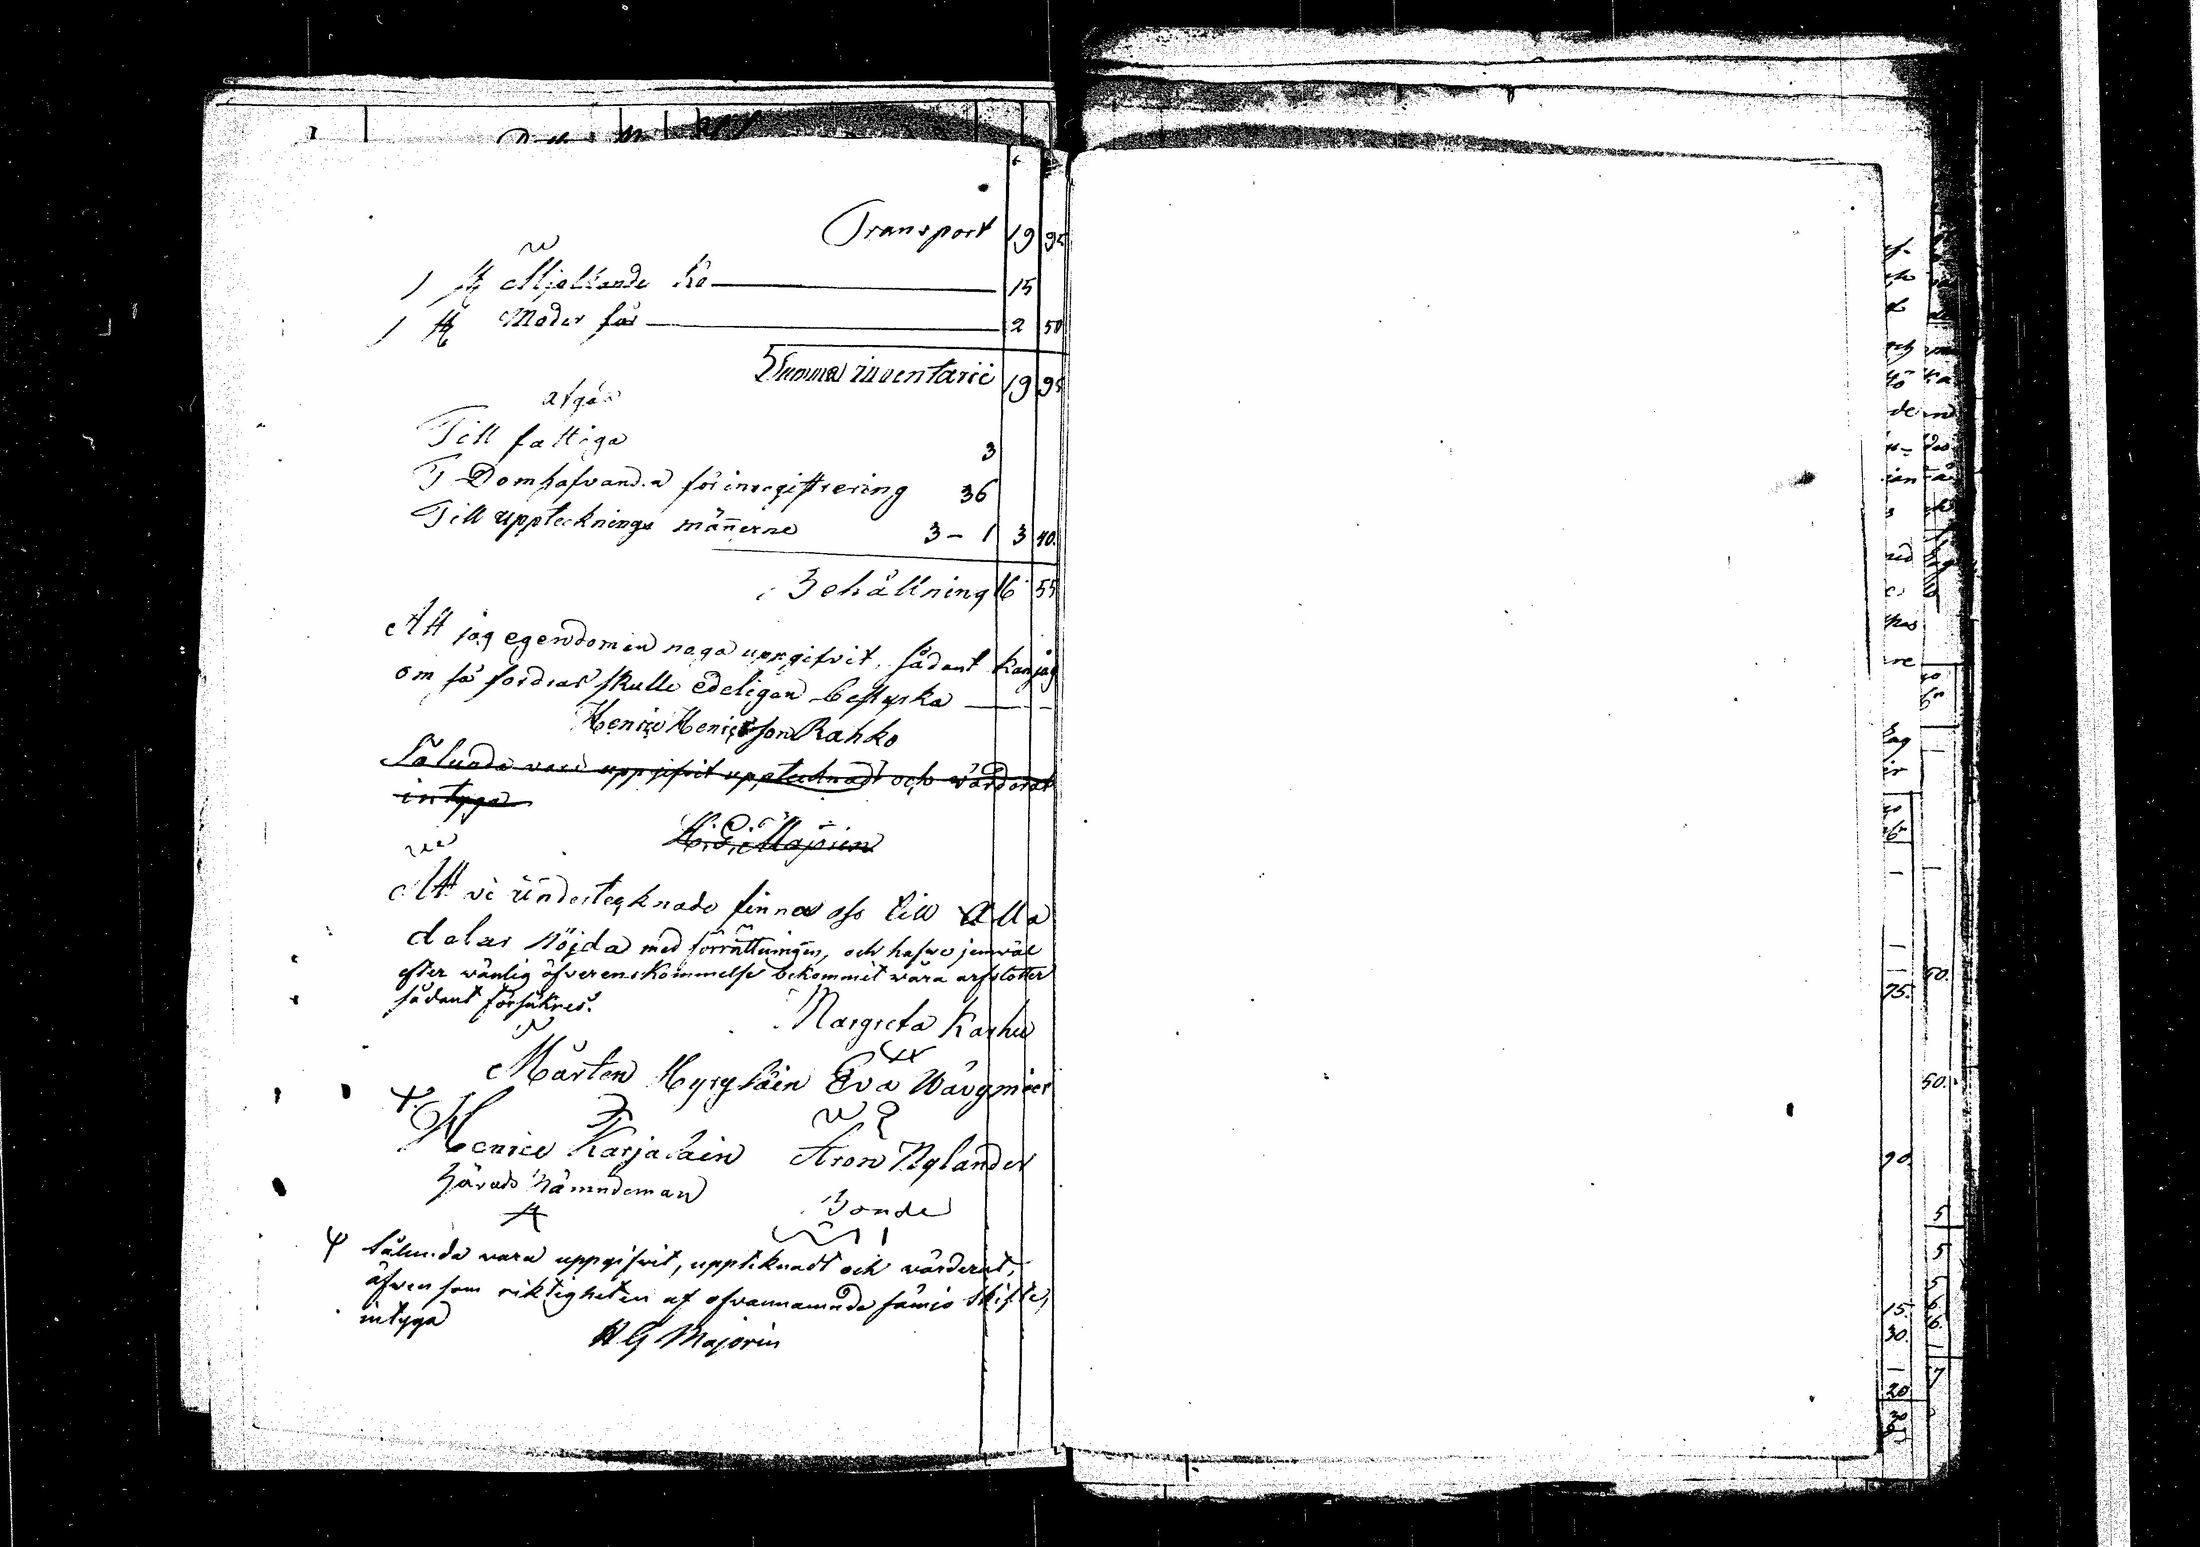 Transport 19 95
1 st Mjölkande Ko 15
1 st Moder får 2 50
Summa inventarii 19 95
afgår
Till fattiga 3
T Domhafvand.n för inregistrering 36
Till upptecknings männerne 3 – 1 3 40.
Behållning 16 55
Att jag egendomen noga uppgifvit, sådant kan jag
om så fordras skulle edeligen bestyrka
Henric Henricsson Rahko
Sålunda vara uppgifvit upptecknadt och värderat
intyga
H: G: Majorin
Att vi undertecknade finna oss till Alla
delar nöjda med förrättningen, och hafve jemwäl
efter wänlig öfverenskommelse bekommit wåra arfslotter
sådant försäkres.
Margreta Karhu
Mårten Hyryläin Eva Wävgmeer
Henric Karjalain Aron Nylander
Härads Nämndeman Bonde
Sålunda vara uppgifvit, uppteknadt och värderat,
äfven som riktigheten af ofvannämnde sämjo skifte,
intyga
H G Majorin